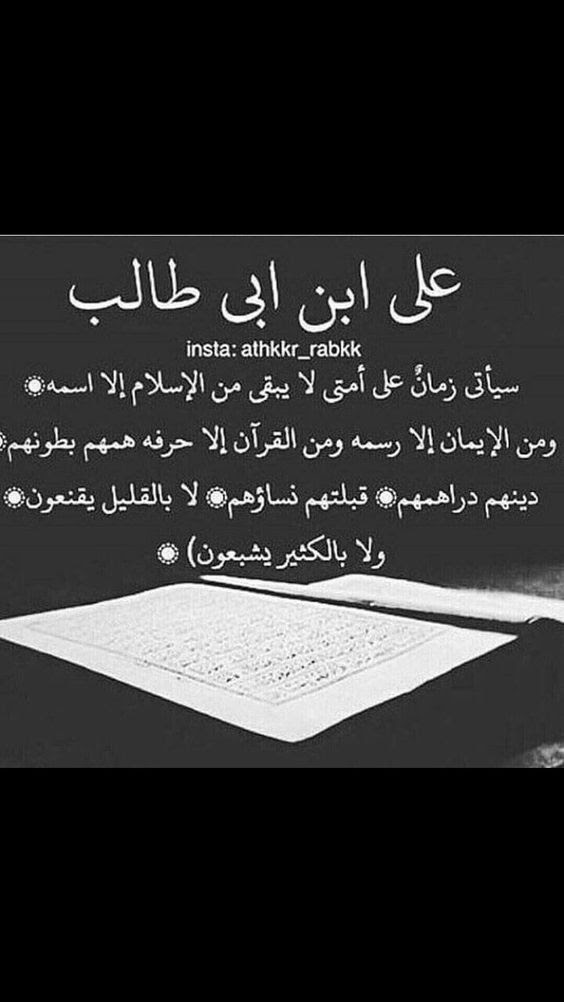 على ابن ابى طالب
insta: athkkr_rabkk
سيأتى زمانٌ على أمتى لا يبقى من الإسلام إلا اسمه
ومن الإيمان إلا رسمه ومن القرآن إلا حرفه همهم بطونهم
دينهم دراهمهم قبلتهم نساؤهم لا بالقليل يقنعون
ولا بالكثير يشبعون)